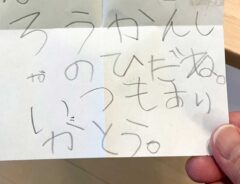 ろうかんし
ゃのひだね。
いつもあり
がとう。